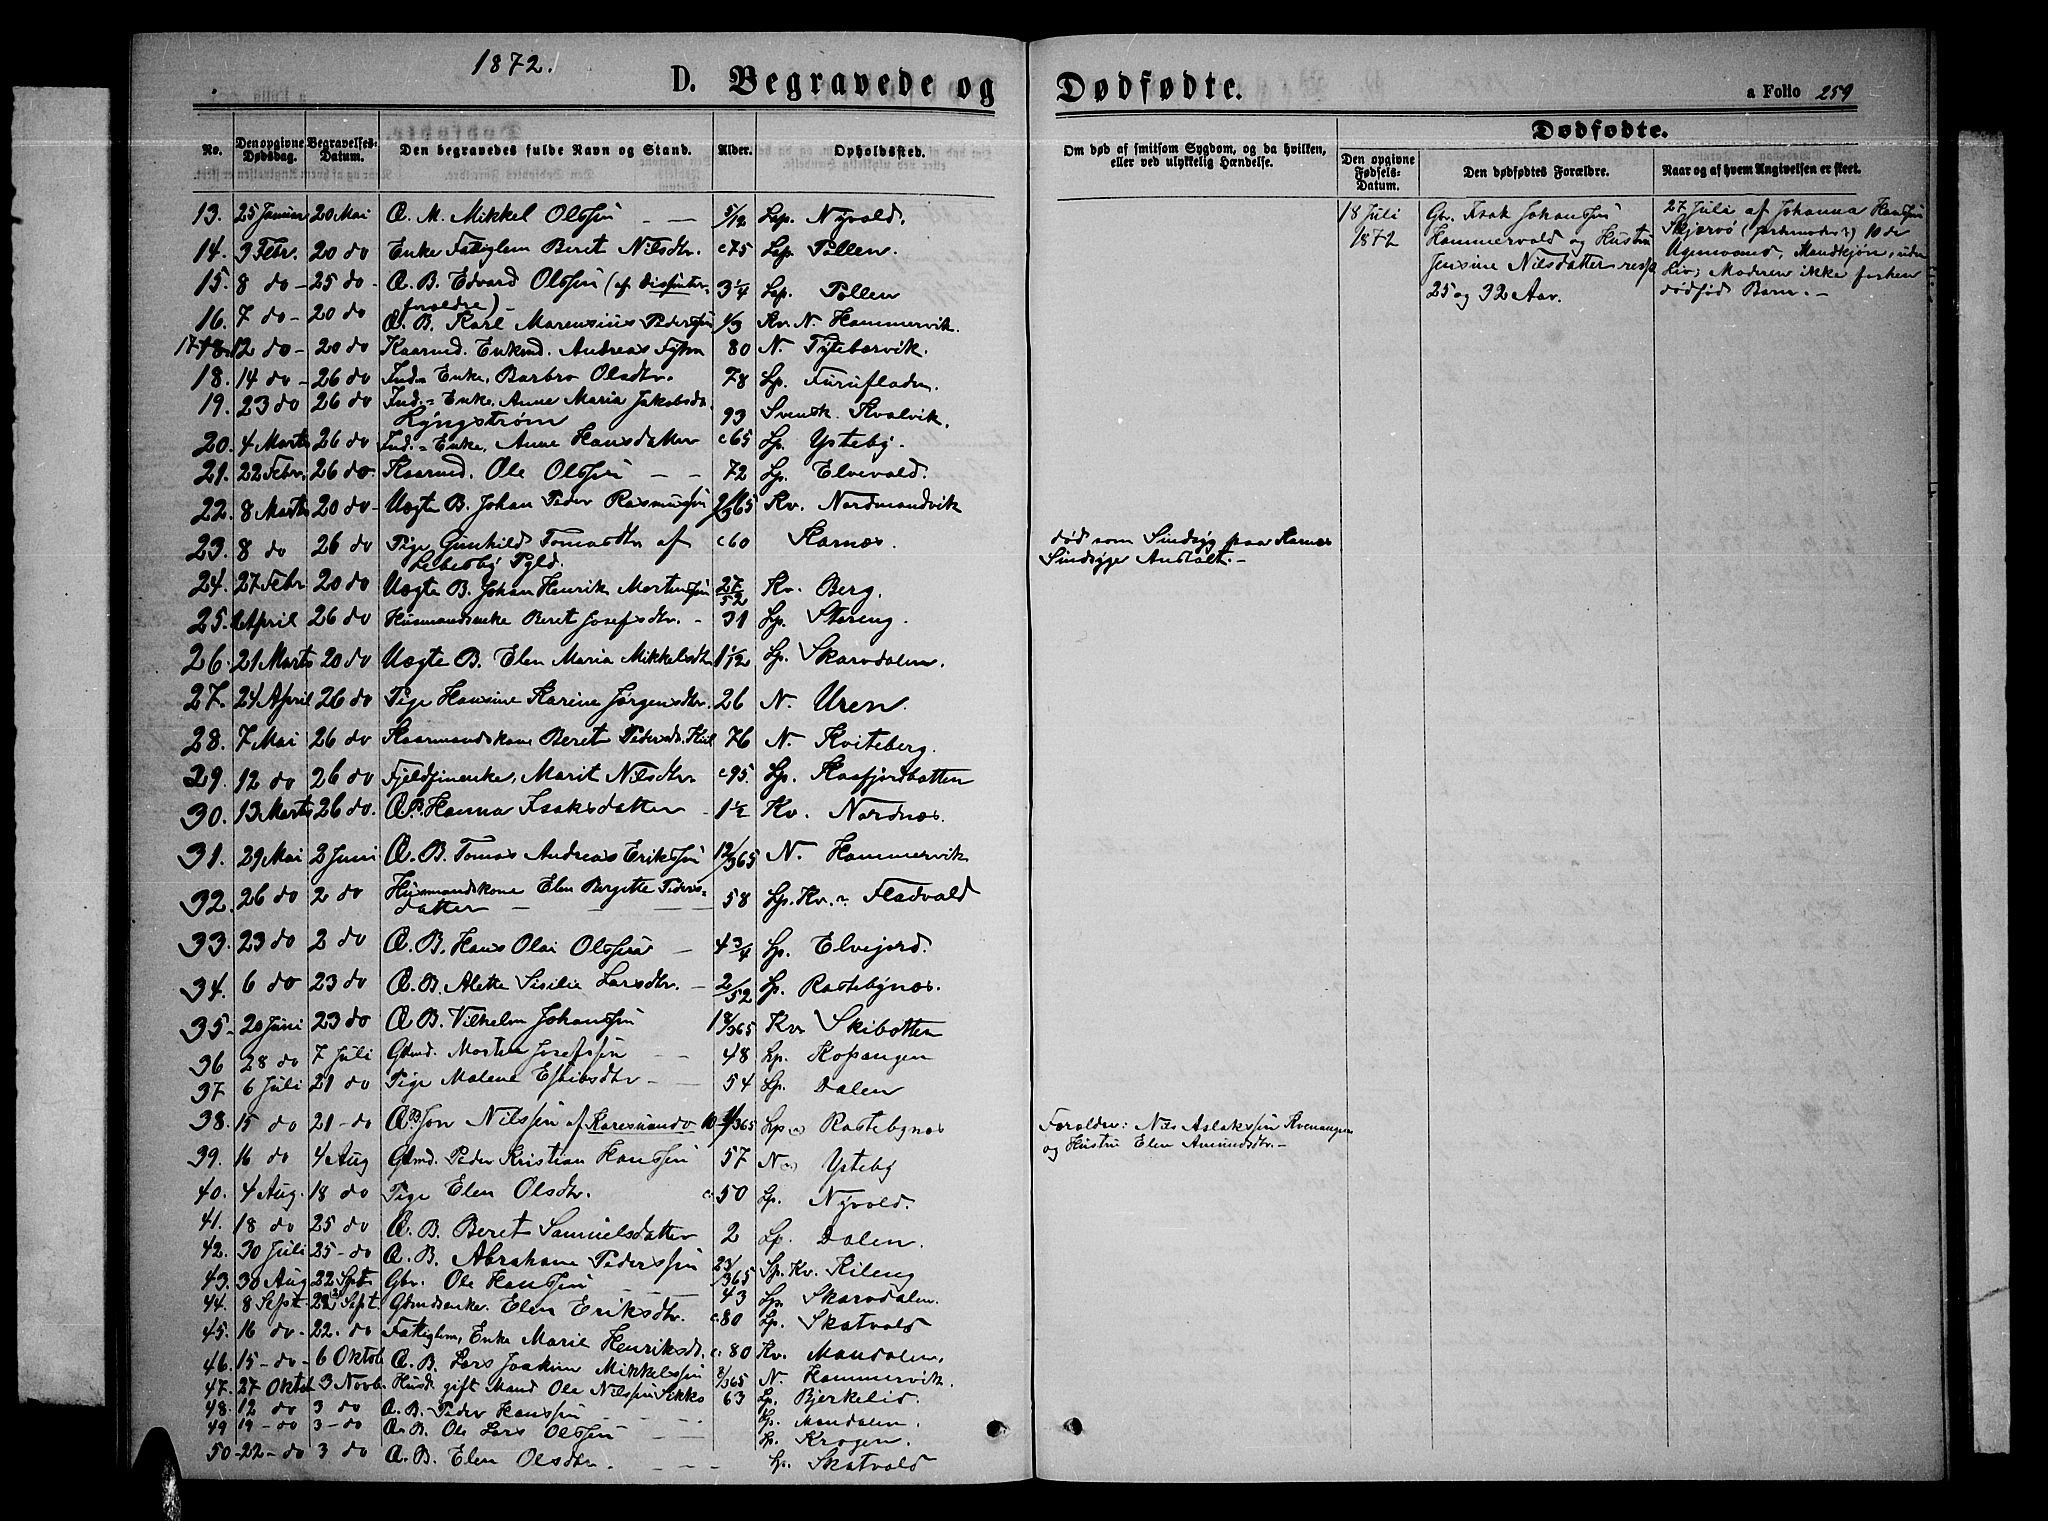 1872.
D. Begravede og
Dødfødte.
a Folio 259
No.
Den opgivne Dødsdag.
Begravelses-Datum.
Den begravedes fulde Navn og Stand.
Alder.
Opholdssted.
Om død af smitsom Sygdom, og da hvilken, eller ved ulykkelig Hændelse.
Dødfødte.
Den opgivne Fødsels-Datum.
Den dødfødtes Forældre.
Naar og af hvem Angivelsen er skeet.
13. 25 Januar 20 Mai Æ. M. Mikkel Olssøn 5/12 Lap. Nyvold.
14. 3 Febr. 20 do Enke Fattiglem Beret Nilsdtr. c75 Lap. Pollen.
15. 8 do 25 do Æ. B. Edvard Olssøn (af dissenter-
forældre) 3 1/4 Lap. Pollen
16. 7 do 20 do Æ. B. Karl Marensius Pederssøn 1/3 Kv. N. Hammervik.
17 12 do 20 do Kaarmd. Enkemd. Andreas 80 N. Tytebærvik.
18. 14 do 26 do Ind. Enke, Barbro Olsdtr. 78 Lp. Furufladen.
19. 23 do 26 do Ind. Enke, Anne Maria Jakobsdr.
Lyngstrøm 93 Svensk. Kvalvik.
20. 4 Marts 26 do Ind. Enke, Anne Hansdatter c65 Lp. Ysteby.
21. 22 Febr. 26 do Kaarmd. Ole Olssøn 72 Lp. Elvevold.
22. 8 Marts 20 do Uægte B. Johan Peder Rasmussøn /365 Kv. Nordmandvik
23. 8 do 26 do Pige Gunhild Tomasdtr. af
Lebesby Pgld. c60 Karnæs.
død som Sindsyg paa Karnæs
Sindsyge Anstalt.
24. 27 Febr 20 do Uægte B. Johan Henrik Mortenssøn 27/52 Kv. Berg.
25. April 26 do Husmandsenke Beret Josefsdtr. 31 Lp. Storeng.
26. 21 Marts 20 do Uægte B. Elen Maria Mikkelsdtr 1 1/12 Lp. Skarvdalen.
27. 24 April 26 do Pige Hansine Karine Jørgensdtr. 26 N. Uren.
28. 7 Mai 26 do Kaarmandskone Beret Pedersdr. 76 N. Kviteberg.
29. 12 do 26 do Fjeldfinenke, Marit Nilsdtr. c95. Lp. Kaafjordbotten
30. 13 Marts 26 do. Æ. P. Hanna Isaksdatter 1 1/2 Kv. Nordnæs.
31. 29 Mai 2 Juni Æ. B. Tomas Andreas Erikssøn 12/365 N. Hammervik
32. 26 do 2 do Husmandskone Elen Bergitte Peders-
datter 58 Lp. Kv. Fladvold
33. 23 do 2 do Æ. B. Hans Olai Olssøn 4 3/4 Lp. Elvejord.
34. 6 do 23 do Æ. B. Alette Sisilie Larsdtr. 2/52 Lp. Rastebynæs.
35. 20 Juni 23 do Æ B. Vilhelm Johanssøn 18/365 Kv. Skibotten
36 28 do 7 Juli Gdmd. Morten Josefssøn 48 Lp. Kopangen
37 6 Juli 21 do Pige Malene Esbensdtr 54 Lp. Dalen
38. 15 do 21 do Æ. B. Jon Nilssøn af Karesuando /365 Lp. Rastebynæs
Forældre: Nils Aslakssøn Kvenangen
og Hustru Elen Amundsdtr.
39. 16 do 4 Aug Gdmd. Peder Kristian Hanssøn 57 N. Ysteby
40. 4 Aug. 18 do Pige Elen Olsdtr. c50 Lp. Nyvold.
41. 18 do 25 do Æ. B. Beret Samuelsdatter 2 Lp. Dalen.
42. 30 Juli 25 do Æ. B. Abraham Pederssøn 23/365 Lp. Kv. Rileng
43. 30 Aug 22 Spt. Gbr. Ole Hanssøn 43 Lp. Skarvdalen.
44. 8 Sept. 22 Sept. Gdmdsenke. Elen Eriksdtr. c80 Lp. Skatvold
45. 16 do 22. do Fattiglem, Enke Marie Henriksdr. c80 Kv. Mandalen.
46. 15 do 6 Oktob Æ. B. Lars Joakim Mikkelssøn 8/365 N. Hammervik.
47. 27 Oktob 3 Novb. Husm gift Mand Ole Nilssøn Sikko 63 Lp. Bjerkelid.
48. 12 do 3 do Æ. B. Peder Hanssøn Lp. Mandalen.
49 19 do 3 do Æ B. Ole Lars Olssøn Lp. Krogen.
50 22 do 3 do Æ. B. Elen Olsdtr. Lp. Skatvold
18 Juli
1872
Gbr. Isak Johanssøn
Hammervold og Hustru
Jensine Nilsdatter resp.
25 og 32 Aar.
27 Juli af Johanna
Skjervø (jordemoder) 10 de
Ugen Mandkjøn, uden
Liv; Moderen ikke forhen
dødfød Barn.